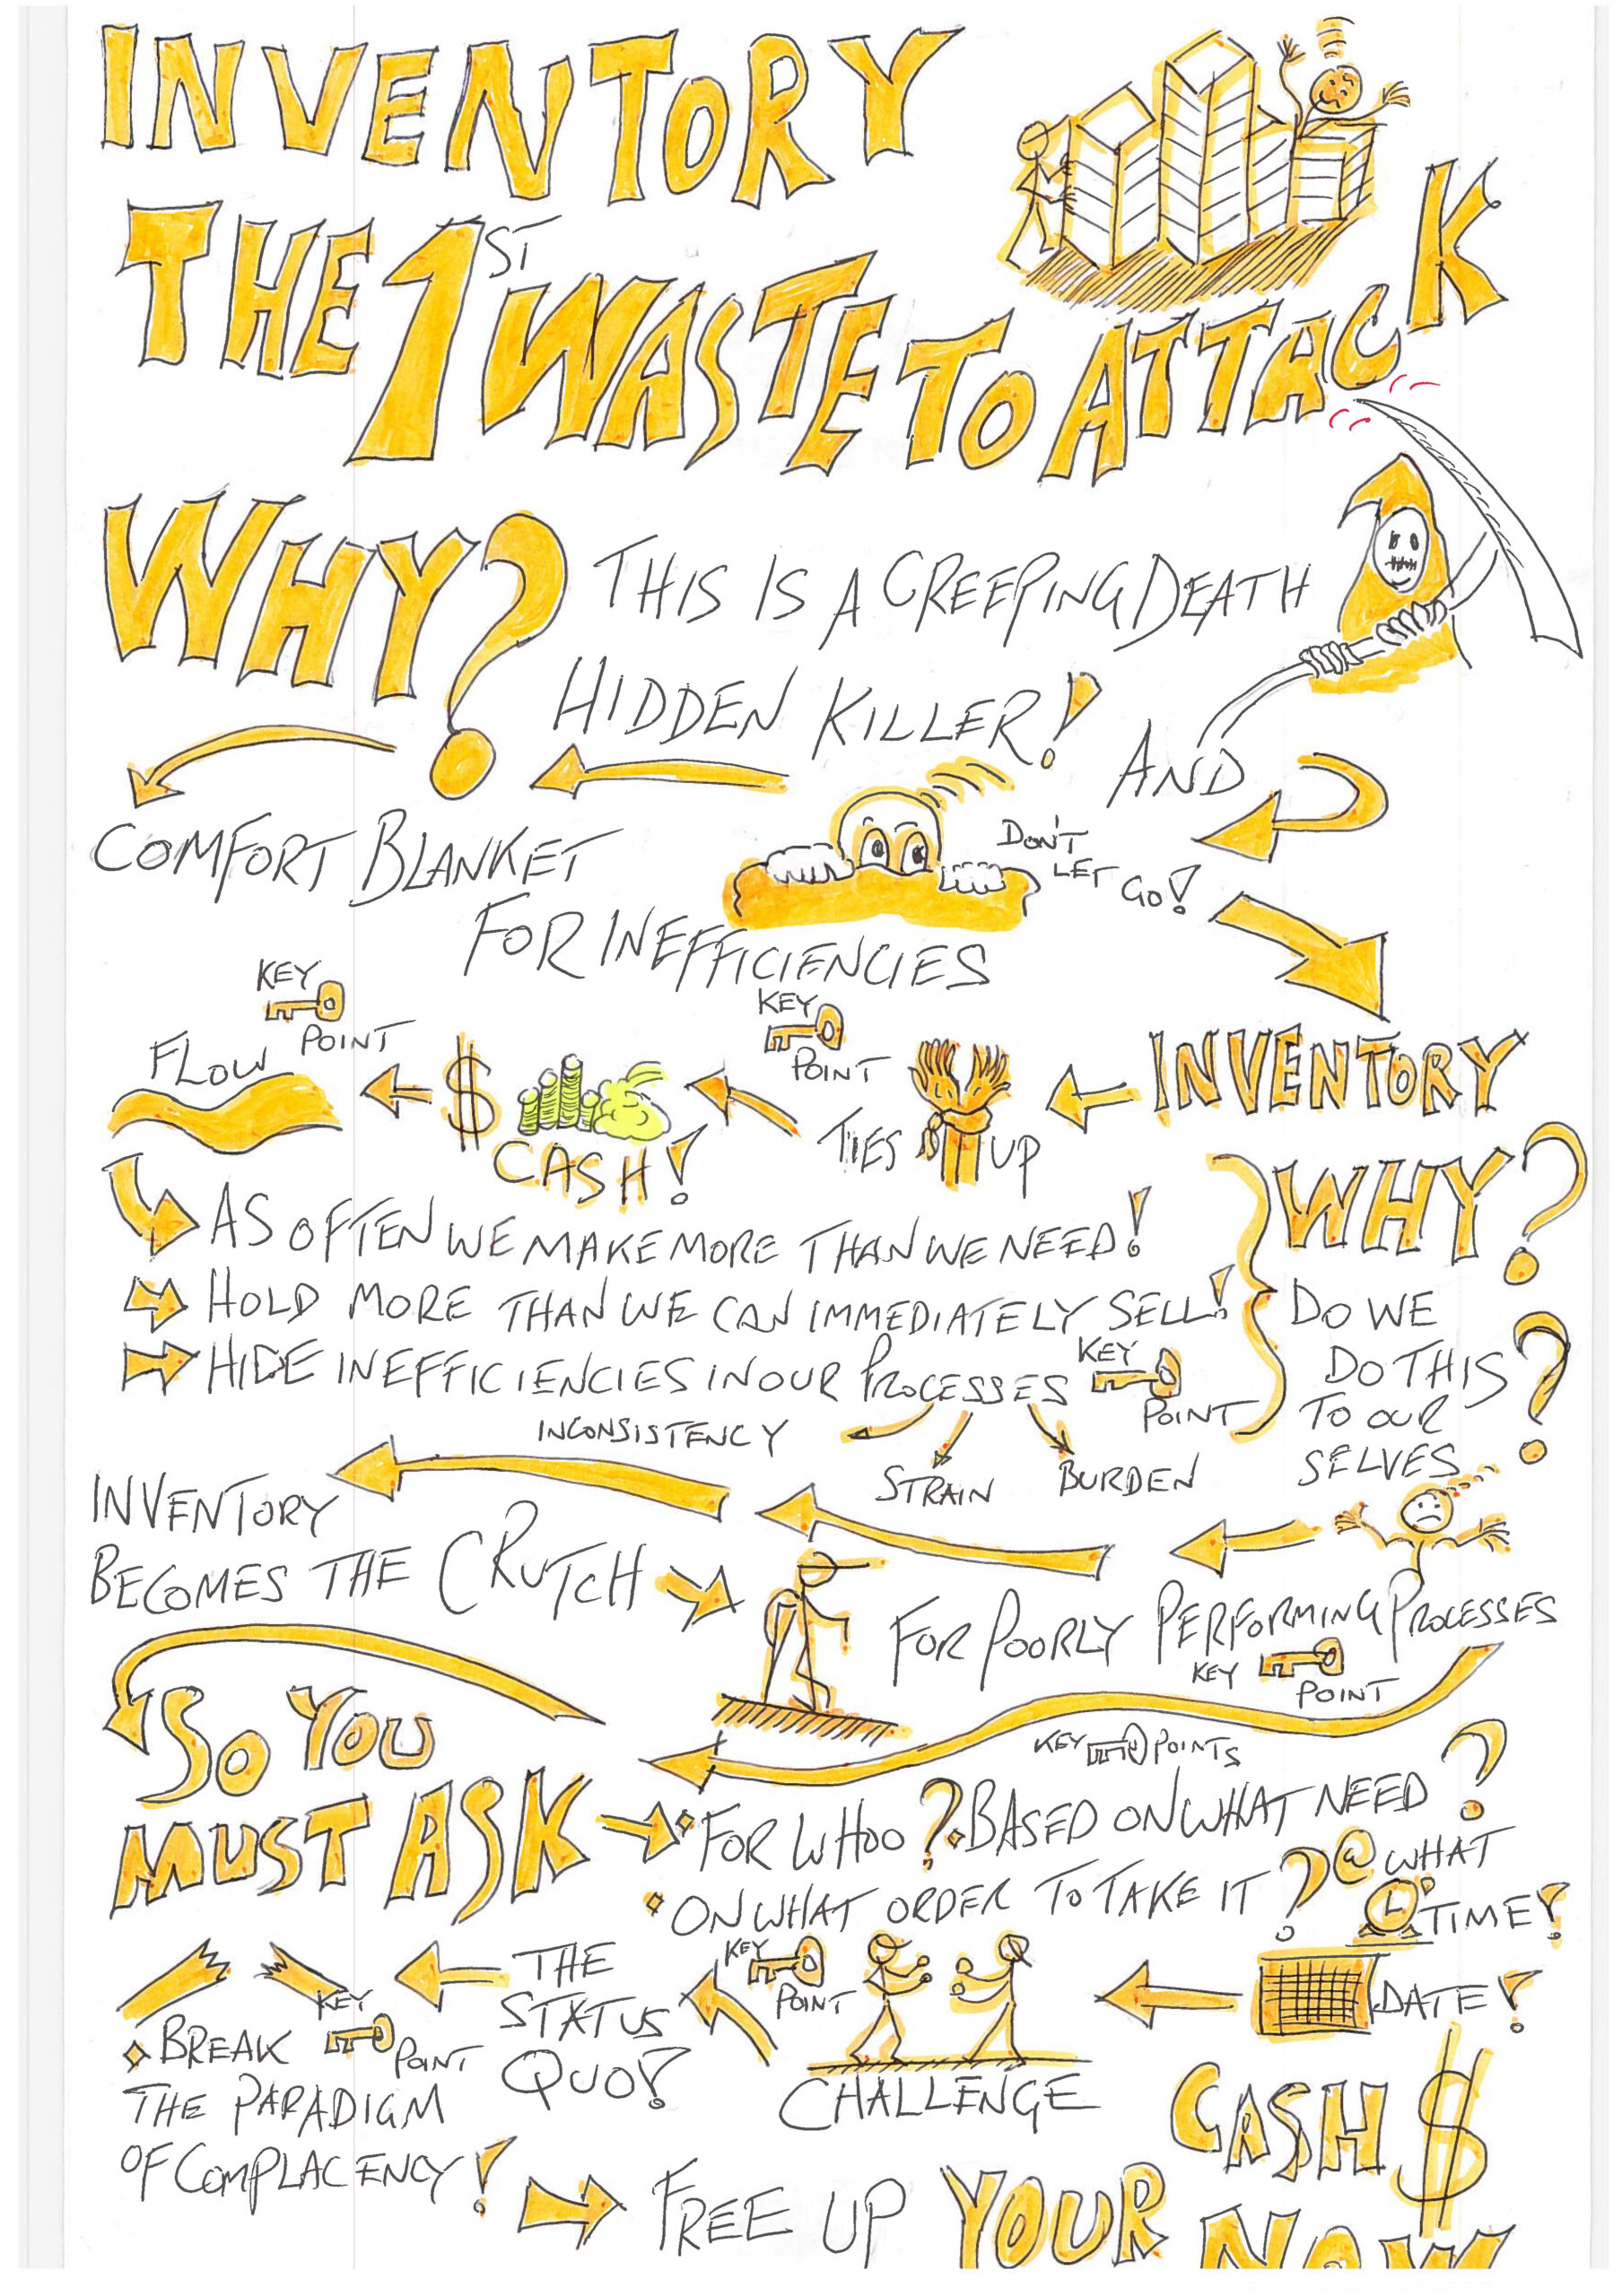 INVENTORY
THE 1ST WASTE TO ATTACK
WHY? THIS IS A CREEPING DEATH
HIDDEN KILLER!
AND
COMFORT BLANKET
DON'T
LET GO!
FOR INEFFICIENCIES
INVENTORY
TIES UP
KEY
POINT
CASH!
$
KEY
POINT
FLOW
AS OFTEN WE MAKE MORE THAN WE NEED!
HOLD MORE THAN WE CAN IMMEDIATELY SELL!
HIDE INEFFICIENCIES IN OUR PROCESSES
KEY
POINT
INCONSISTENCY
STRAIN
BURDEN
WHY?
DO WE
DO THIS
TO OUR
SELVES ?
INVENTORY
BECOMES THE CRUTCH
FOR POORLY PERFORMING PROCESSES
KEY
POINT
SO YOU
MUST ASK
KEY POINTS
FOR WHOO? BASED ON WHAT NEED?
ON WHAT ORDER TO TAKE IT? @ WHAT
TIME!
DATE!
CHALLENGE
KEY
POINT
THE
STATUS
QUO!
BREAK
KEY
POINT
THE PARADIGM
OF COMPLACENCY!
FREE UP YOUR
CASH $
NOW